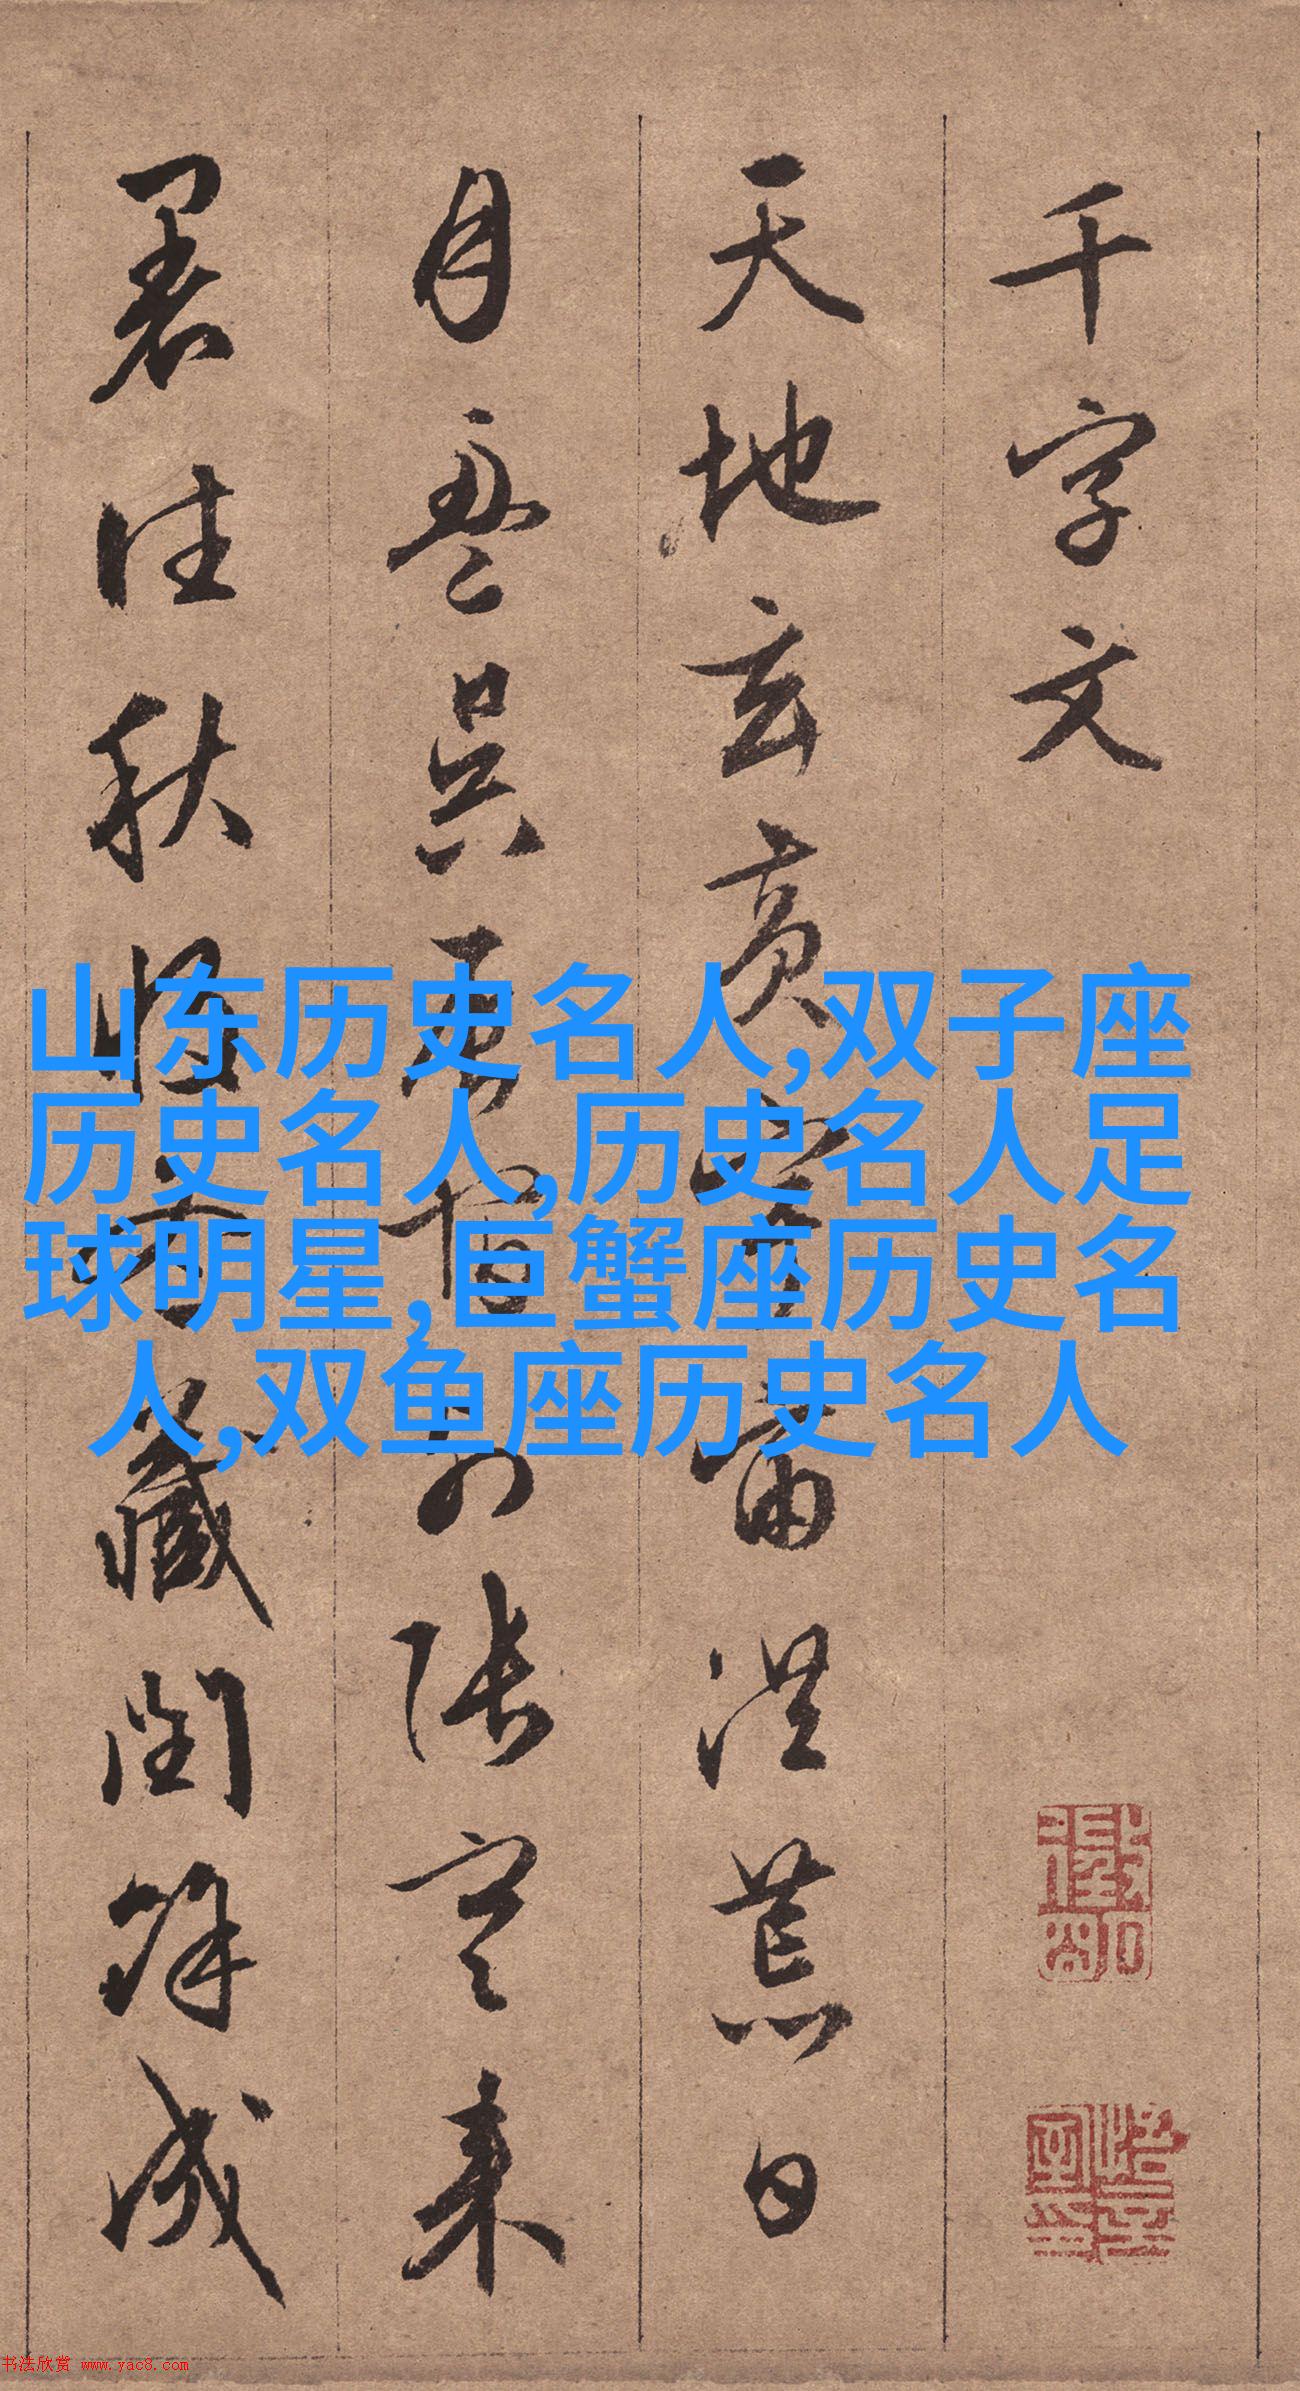 千字文
天地玄黄宇宙洪荒日
月盈昃辰宿列张寒来
暑往秋收冬藏闰馀成
山东历史名人,双子座
历史名人,历史名人足
球明星,巨蟹座历史名
人,双鱼座历史名人
书法欣赏 www.yac8.com